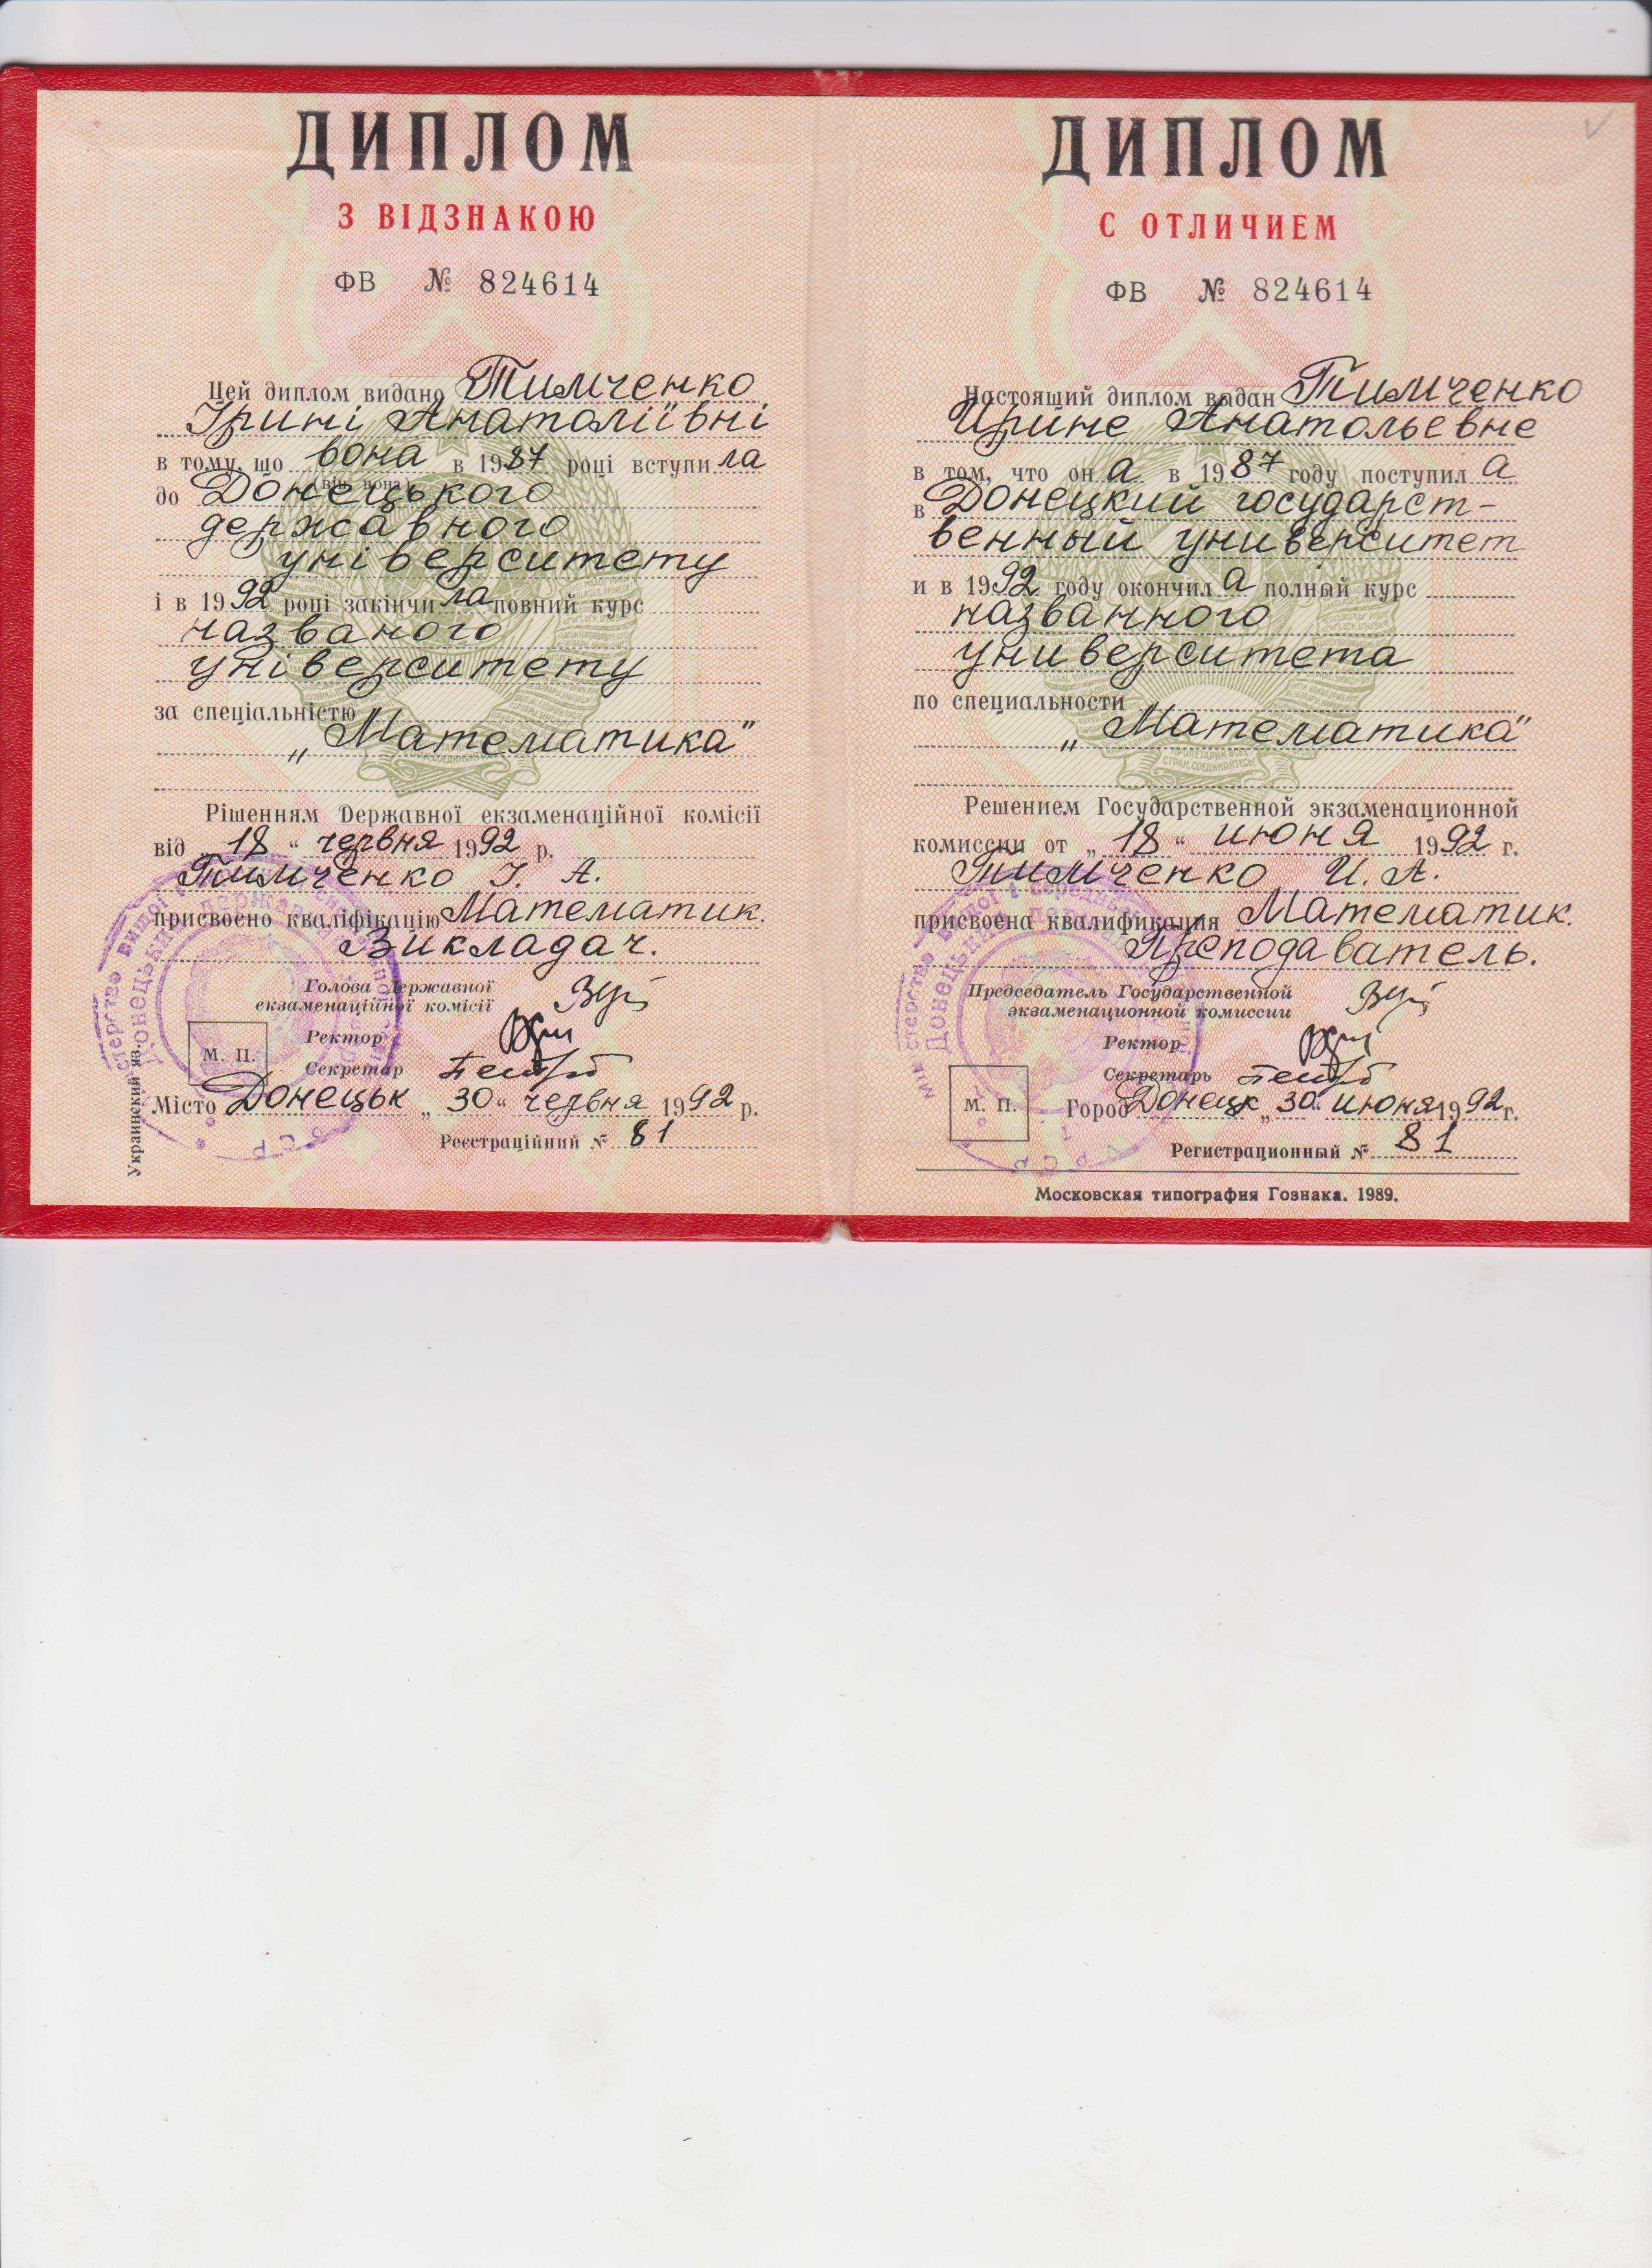 ДИПЛОМ
З ВІДЗНАКОЮ
ФВ № 824614
Цей диплом видано Тимченко
Ірині Анатоліївні
в тому, що вона в 1987 році вступила
(він, вона)
до Донецького
державного
університету
і в 1992 році закінчила повний курс
названого
університету
за спеціальністю
„Математика"
Рішенням Державної екзаменаційної комісії
від „18" червня 1992 р.
Тимченко І. А.
присвоєно кваліфікацію Математик.
Викладач.
Голова Державної
екзаменаційної комісії
Ректор
М. П.
Секретар
Місто Донецьк „30" червня 1992 р.
Реєстраційний № 81
Украинский яз.
ДИПЛОМ
С ОТЛИЧИЕМ
ФВ № 824614
Настоящий диплом выдан Тимченко
Ирине Анатольевне
в том, что она в 1987 году поступила
в Донецкий государст-
венный университет
и в 1992 году окончила полный курс
названного
университета
по специальности
„Математика"
Решением Государственной экзаменационной
комиссии от „18" июня 1992 г.
Тимченко И. А.
присвоена квалификация Математик.
Преподаватель.
Председатель Государственной
экзаменационной комиссии
Ректор
Секретарь
М. П.
Город Донецк „30" июня 1992 г.
Регистрационный № 81
Московская типография Гознака. 1989.